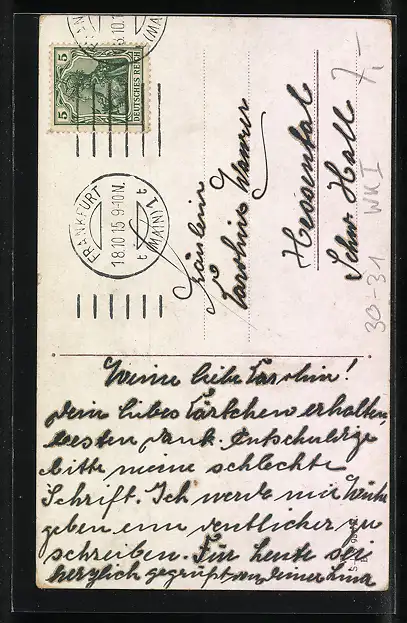 5 DEUTSCHES REICH 5
FRANKFURT
18.10.15 9-10N.
(MAIN) 1 t
Fräulein
Caroline
Hessenhal
Schw. Hall
7,-
30-31 WK I
Meine liebe Carolin!
Dein liebes Kärtchen erhalten,
besten Dank. Entschuldige
bitte meine schlechte
Schrift. Ich werde mir Mühe
geben um deutlicher zu
schreiben. Für heute sei
herzlich gegrüßt von deiner Lina